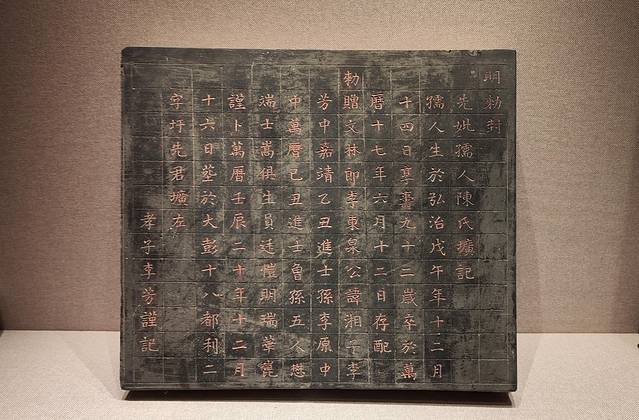 明勅封
先妣孺人陳氏壙記
孺人生於弘治戊午年十二月
十四日享壽九十二歲卒於萬
曆十七年六月十二日存配
勅贈文林郎李東泉公諱湘子李
芳中嘉靖乙丑進士孫李原中
中萬曆己丑進士曾孫五人懋
端士嵩俱生員廷愷明瑞華
謹卜萬曆壬辰二十年十二月
十六日塟於大彭十八都利二
字圩先君壙左
孝子李芳謹記